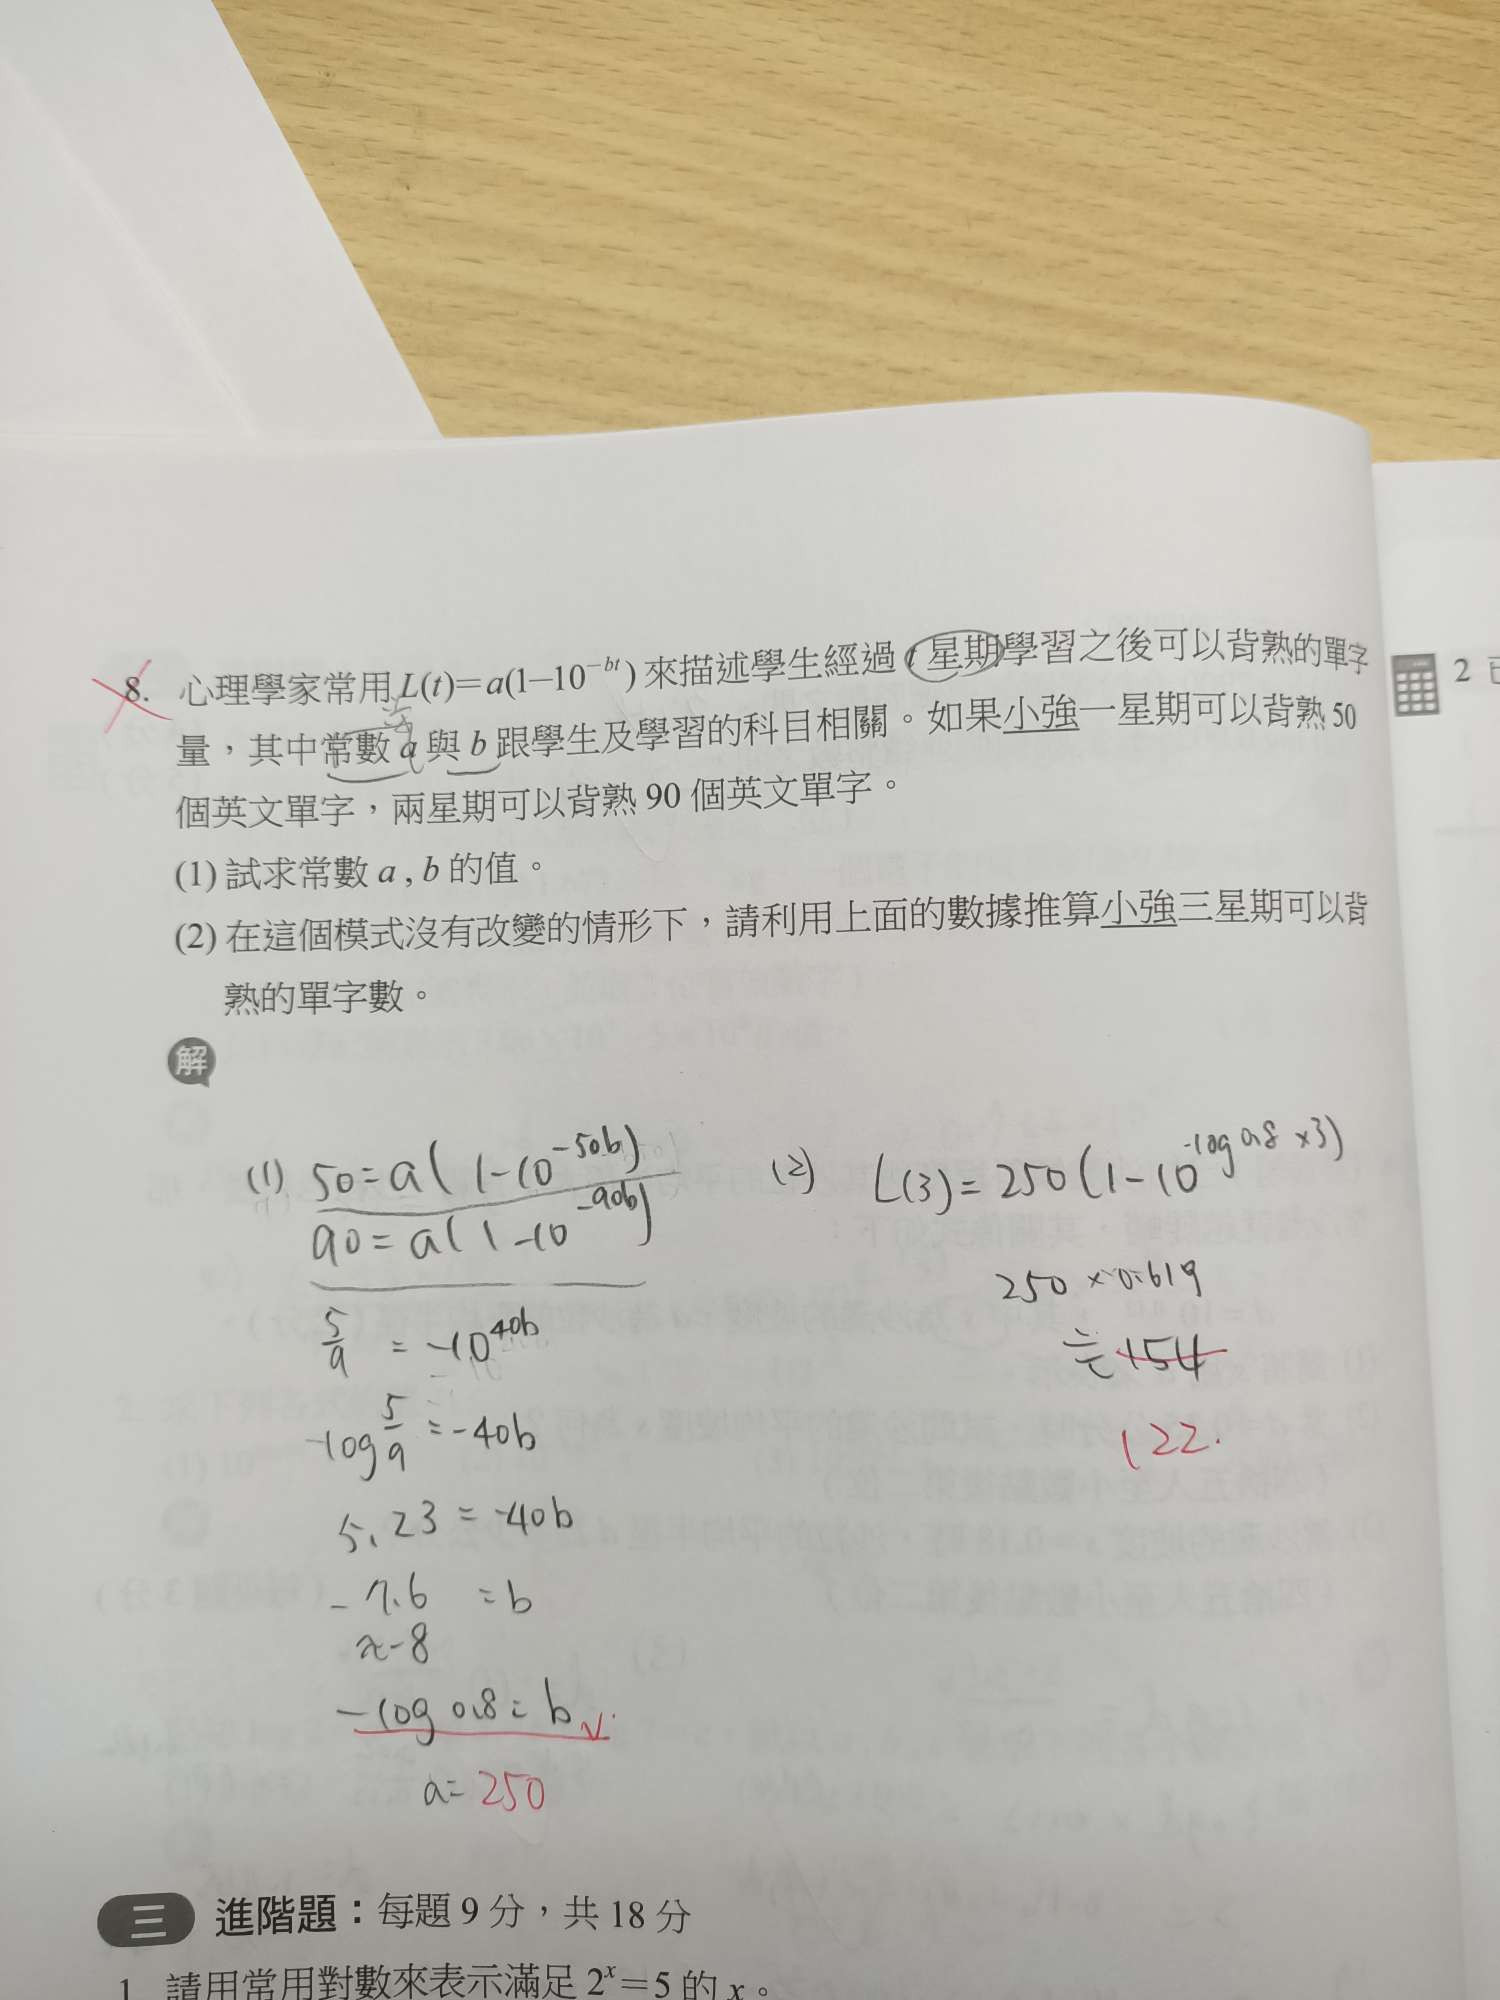 8. 心理學家常用 L(t)=a(1−10^{−bt}) 來描述學生經過 t 星期學習之後可以背熟的單字
量，其中常數 a 與 b 跟學生及學習的科目相關。如果小強一星期可以背熟 50
個英文單字，兩星期可以背熟 90 個英文單字。
(1) 試求常數 a , b 的值。
(2) 在這個模式沒有改變的情形下，請利用上面的數據推算小強三星期可以背
熟的單字數。
解
(1) 50=a(1-10^{-50b})
90=a(1-10^{-90b})
5/9 = -10^{40b}
-log 5/9 = -40b
5.23 = -40b
-7.6 = b
≈-8
-log 0.8 = b
a= 250
(2) L(3)=250(1-10^{-log 0.8 ×3})
250 × 0.619
≒ 154
122.
三 進階題：每題 9 分，共 18 分
1. 請用常用對數來表示滿足 2^x=5 的 x。
2